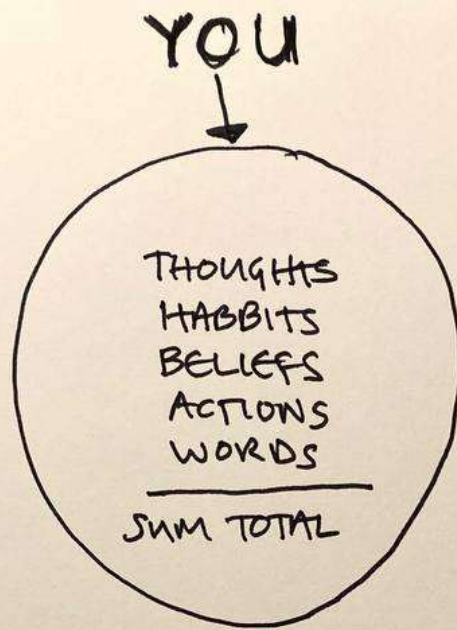 YOU
THOUGHTS
HABBITS
BELIEFS
ACTIONS
WORDS
SUM TOTAL